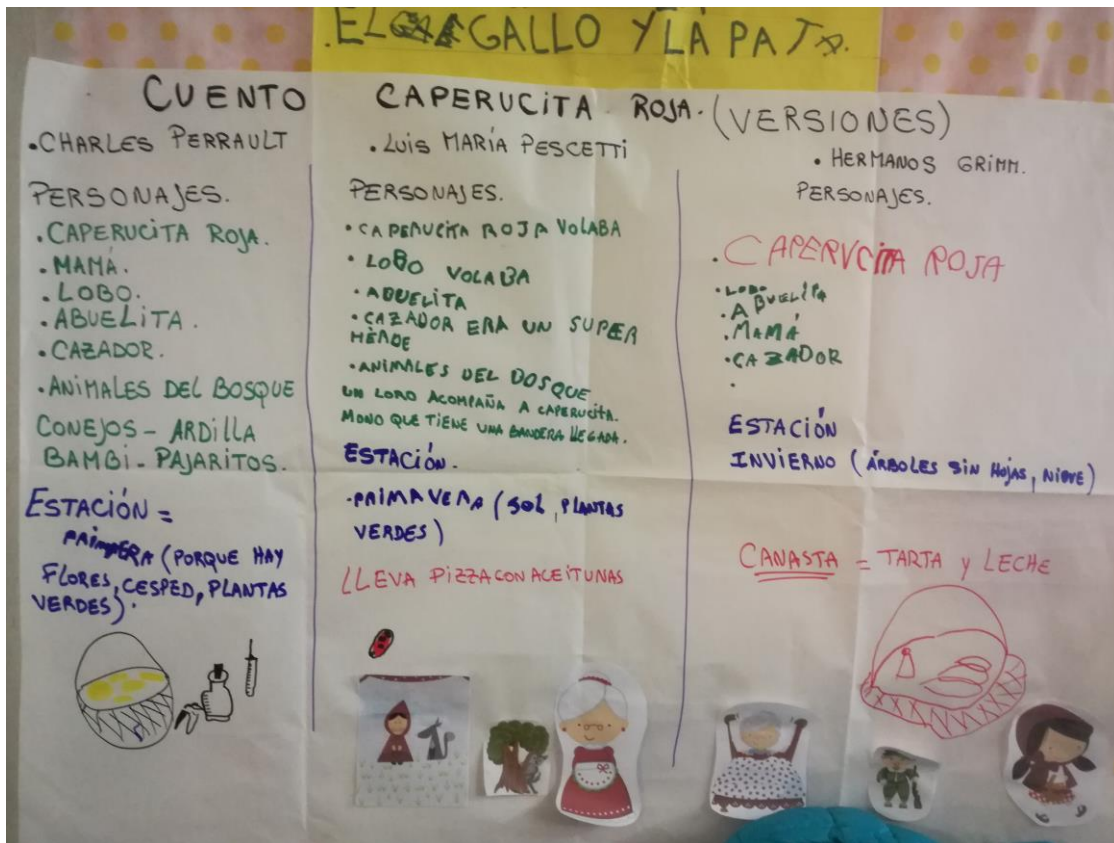 .EL GALLO Y LA PATA.
CUENTO CAPERUCITA ROJA. (VERSIONES)
.CHARLES PERRAULT
PERSONAJES.
.CAPERUCITA ROJA.
.MAMÁ.
.LOBO.
.ABUELITA.
.CAZADOR.
.ANIMALES DEL BOSQUE
CONEJOS - ARDILLA
BAMBI - PAJARITOS.
ESTACIÓN =
(PORQUE HAY
FLORES, CESPED, PLANTAS
VERDES).
. LUIS MARÍA PESCETTI
PERSONAJES.
.CAPERUCITA ROJA VOLABA
. LOBO VOLABA
.ABUELITA
.CAZADOR ERA UN SUPER
HÈROE
.ANIMALES DEL BOSQUE
UN LORO ACOMPAÑA A CAPERUCITA.
MONO QUE TIENE UNA BANDERA
ESTACIÓN.
.PRIMAVERA (SOL, PLANTAS
VERDES)
LLEVA PIZZA CON ACEITUNAS
. HERMANOS GRIMM.
PERSONAJES.
.CAPERUCITA ROJA
.LOBO
.ABUELITA
.MAMÁ
.CAZADOR
.
ESTACIÓN
INVIERNO (ÁRBOLES SIN HOJAS, NIEVE)
CANASTA = TARTA y LECHE